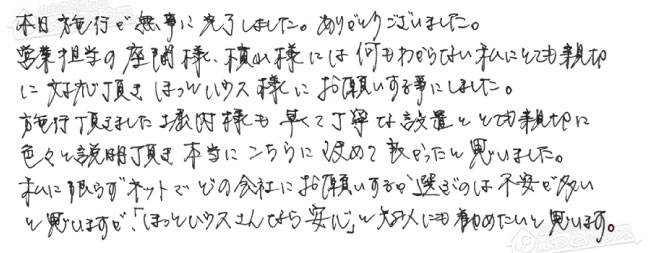 本日施行が無事に完了しました。ありがとうございました。
営業担当の座間様、横山様には何もわからない私にとても親切
に対応頂き ほっとハウス様にお願いする事にしました。
施行頂きました堀内様も早くて丁寧な設置ととても親切に
色々と説明頂き本当にこちらに決めて良かったと思いました。
私に限らずネットでどの会社にお願いするか選ぶのは不安が多い
と思いますが、「ほっとハウスさんなら安心」と知人にも勧めたいと思います。